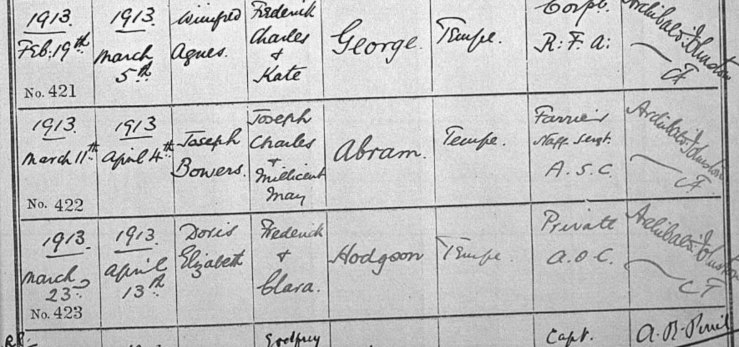 1913.
Feb. 19th
No. 421
1913.
March
5th
Winifred
Agnes.
Frederick
Charles
&
Kate
George.
Tempe.
Corpl.
R. F. A.
Archibald Johnston
CF
1913.
March 11th
No. 422
1913
April 4th
Joseph
Bowers.
Joseph
Charles
&
Millicent
May
Abram.
Tempe.
Farrier
Staff Sergt.
A. S. C.
Archibald Johnston
CF
1913.
March
23rd
No. 423
1913.
April
13th
Doris
Elizabeth
Frederick
&
Clara.
Hodgson
Tempe.
Private
A. O. C.
Archibald Johnston
CF
Godfrey
Capt.